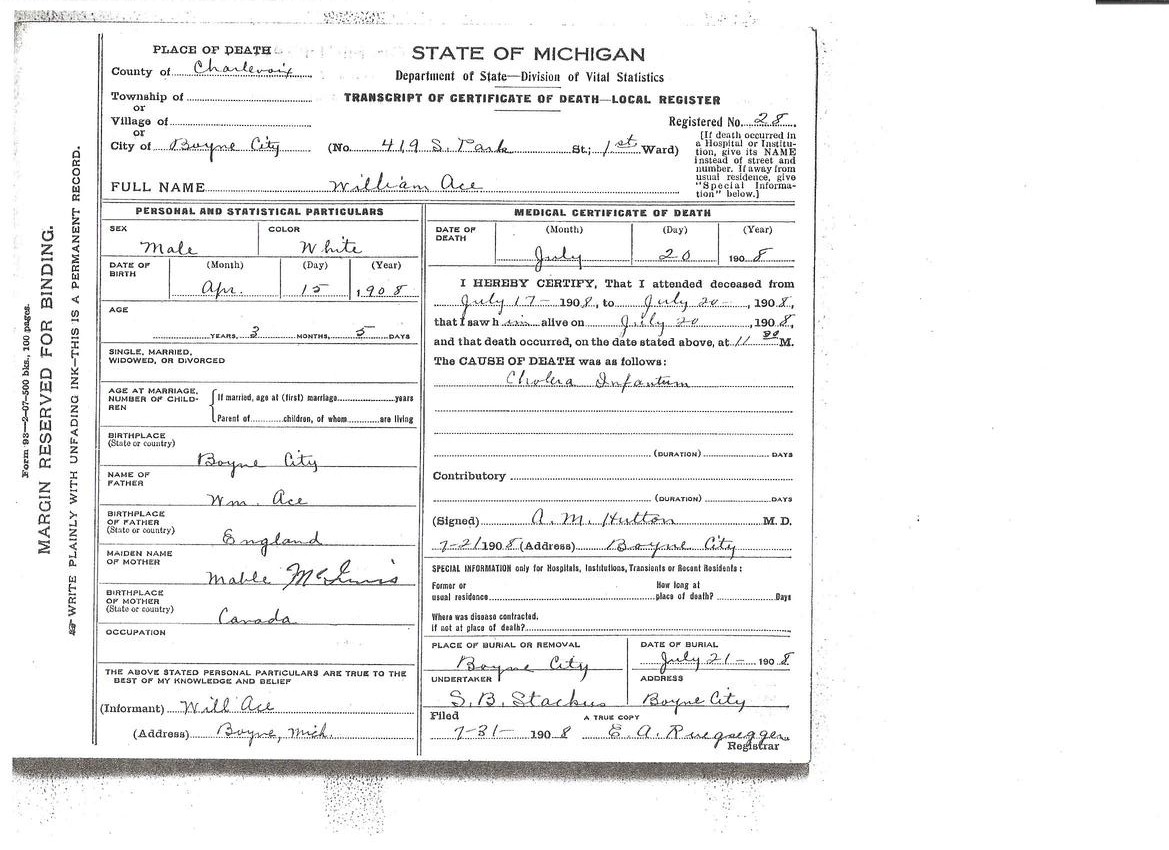 PLACE OF DEATH
County of Charlevoix
Township of
or
Village of
or
City of Boyne City
STATE OF MICHIGAN
Department of State—Division of Vital Statistics
TRANSCRIPT OF CERTIFICATE OF DEATH—LOCAL REGISTER
Registered No. 28
(No. 419 S. Park St; 1st Ward)
[If death occurred in
a Hospital or Institu-
tion, give its NAME
instead of street and
number. If away from
usual residence, give
"Special Informa-
tion" below.]
FULL NAME William Ace
PERSONAL AND STATISTICAL PARTICULARS
SEX
Male
COLOR
White
DATE OF
BIRTH
(Month) (Day) (Year)
Apr. 15 1908
AGE
YEARS, 3 MONTHS, 5 DAYS
SINGLE, MARRIED,
WIDOWED, OR DIVORCED
AGE AT MARRIAGE,
NUMBER OF CHILD-
REN
If married, age at (first) marriage years
Parent of children, of whom are living
BIRTHPLACE
(State or country)
Boyne City
NAME OF
FATHER
Wm. Ace
BIRTHPLACE
OF FATHER
(State or country)
England
MAIDEN NAME
OF MOTHER
Mable McInnis
BIRTHPLACE
OF MOTHER
(State or country)
Canada
OCCUPATION
THE ABOVE STATED PERSONAL PARTICULARS ARE TRUE TO THE
BEST OF MY KNOWLEDGE AND BELIEF
(Informant) Will Ace
(Address) Boyne, Mich.
MEDICAL CERTIFICATE OF DEATH
DATE OF
DEATH
(Month) (Day) (Year)
July 20 1908
I HEREBY CERTIFY, That I attended deceased from
July 17- 1908, to July 20-, 1908,
that I saw him alive on July 20, 1908,
and that death occurred, on the date stated above, at 11 30 M.
The CAUSE OF DEATH was as follows:
Cholera Infantum
(DURATION) DAYS
Contributory
(DURATION) DAYS
(Signed) A. M. Hutton M. D.
7-21 1908 (Address) Boyne City
SPECIAL INFORMATION only for Hospitals, Institutions, Transients or Recent Residents:
Former or
usual residence
How long at
place of death? Days
Where was disease contracted,
if not at place of death?
PLACE OF BURIAL OR REMOVAL
Boyne City
DATE OF BURIAL
July 21- 1908
UNDERTAKER
S. B. Stackus
ADDRESS
Boyne City
Filed
7-31- 1908
A TRUE COPY
E. A. Ruegsegger
Registrar
Form 93—2-07-500 bks., 100 pages.
MARGIN RESERVED FOR BINDING.
WRITE PLAINLY WITH UNFADING INK—THIS IS A PERMANENT RECORD.